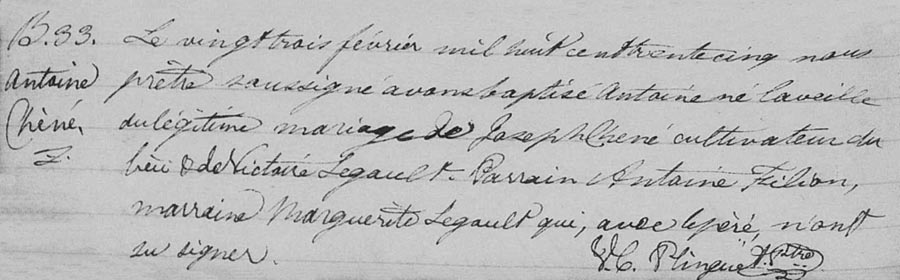 B. 33.
Antoine
Chèné,
Le vingt trois février mil huit cent trente cinq nous
prêtre soussigné avons baptisé Antoine né la veille
du légitime mariage de Joseph Chené cultivateur du
lieu & de Victoire Legault. Parrain Antoine Filion,
marraine Marguerite Legault qui, avec le père, n'ont
su signer.
V. C. Plinguet Ptre